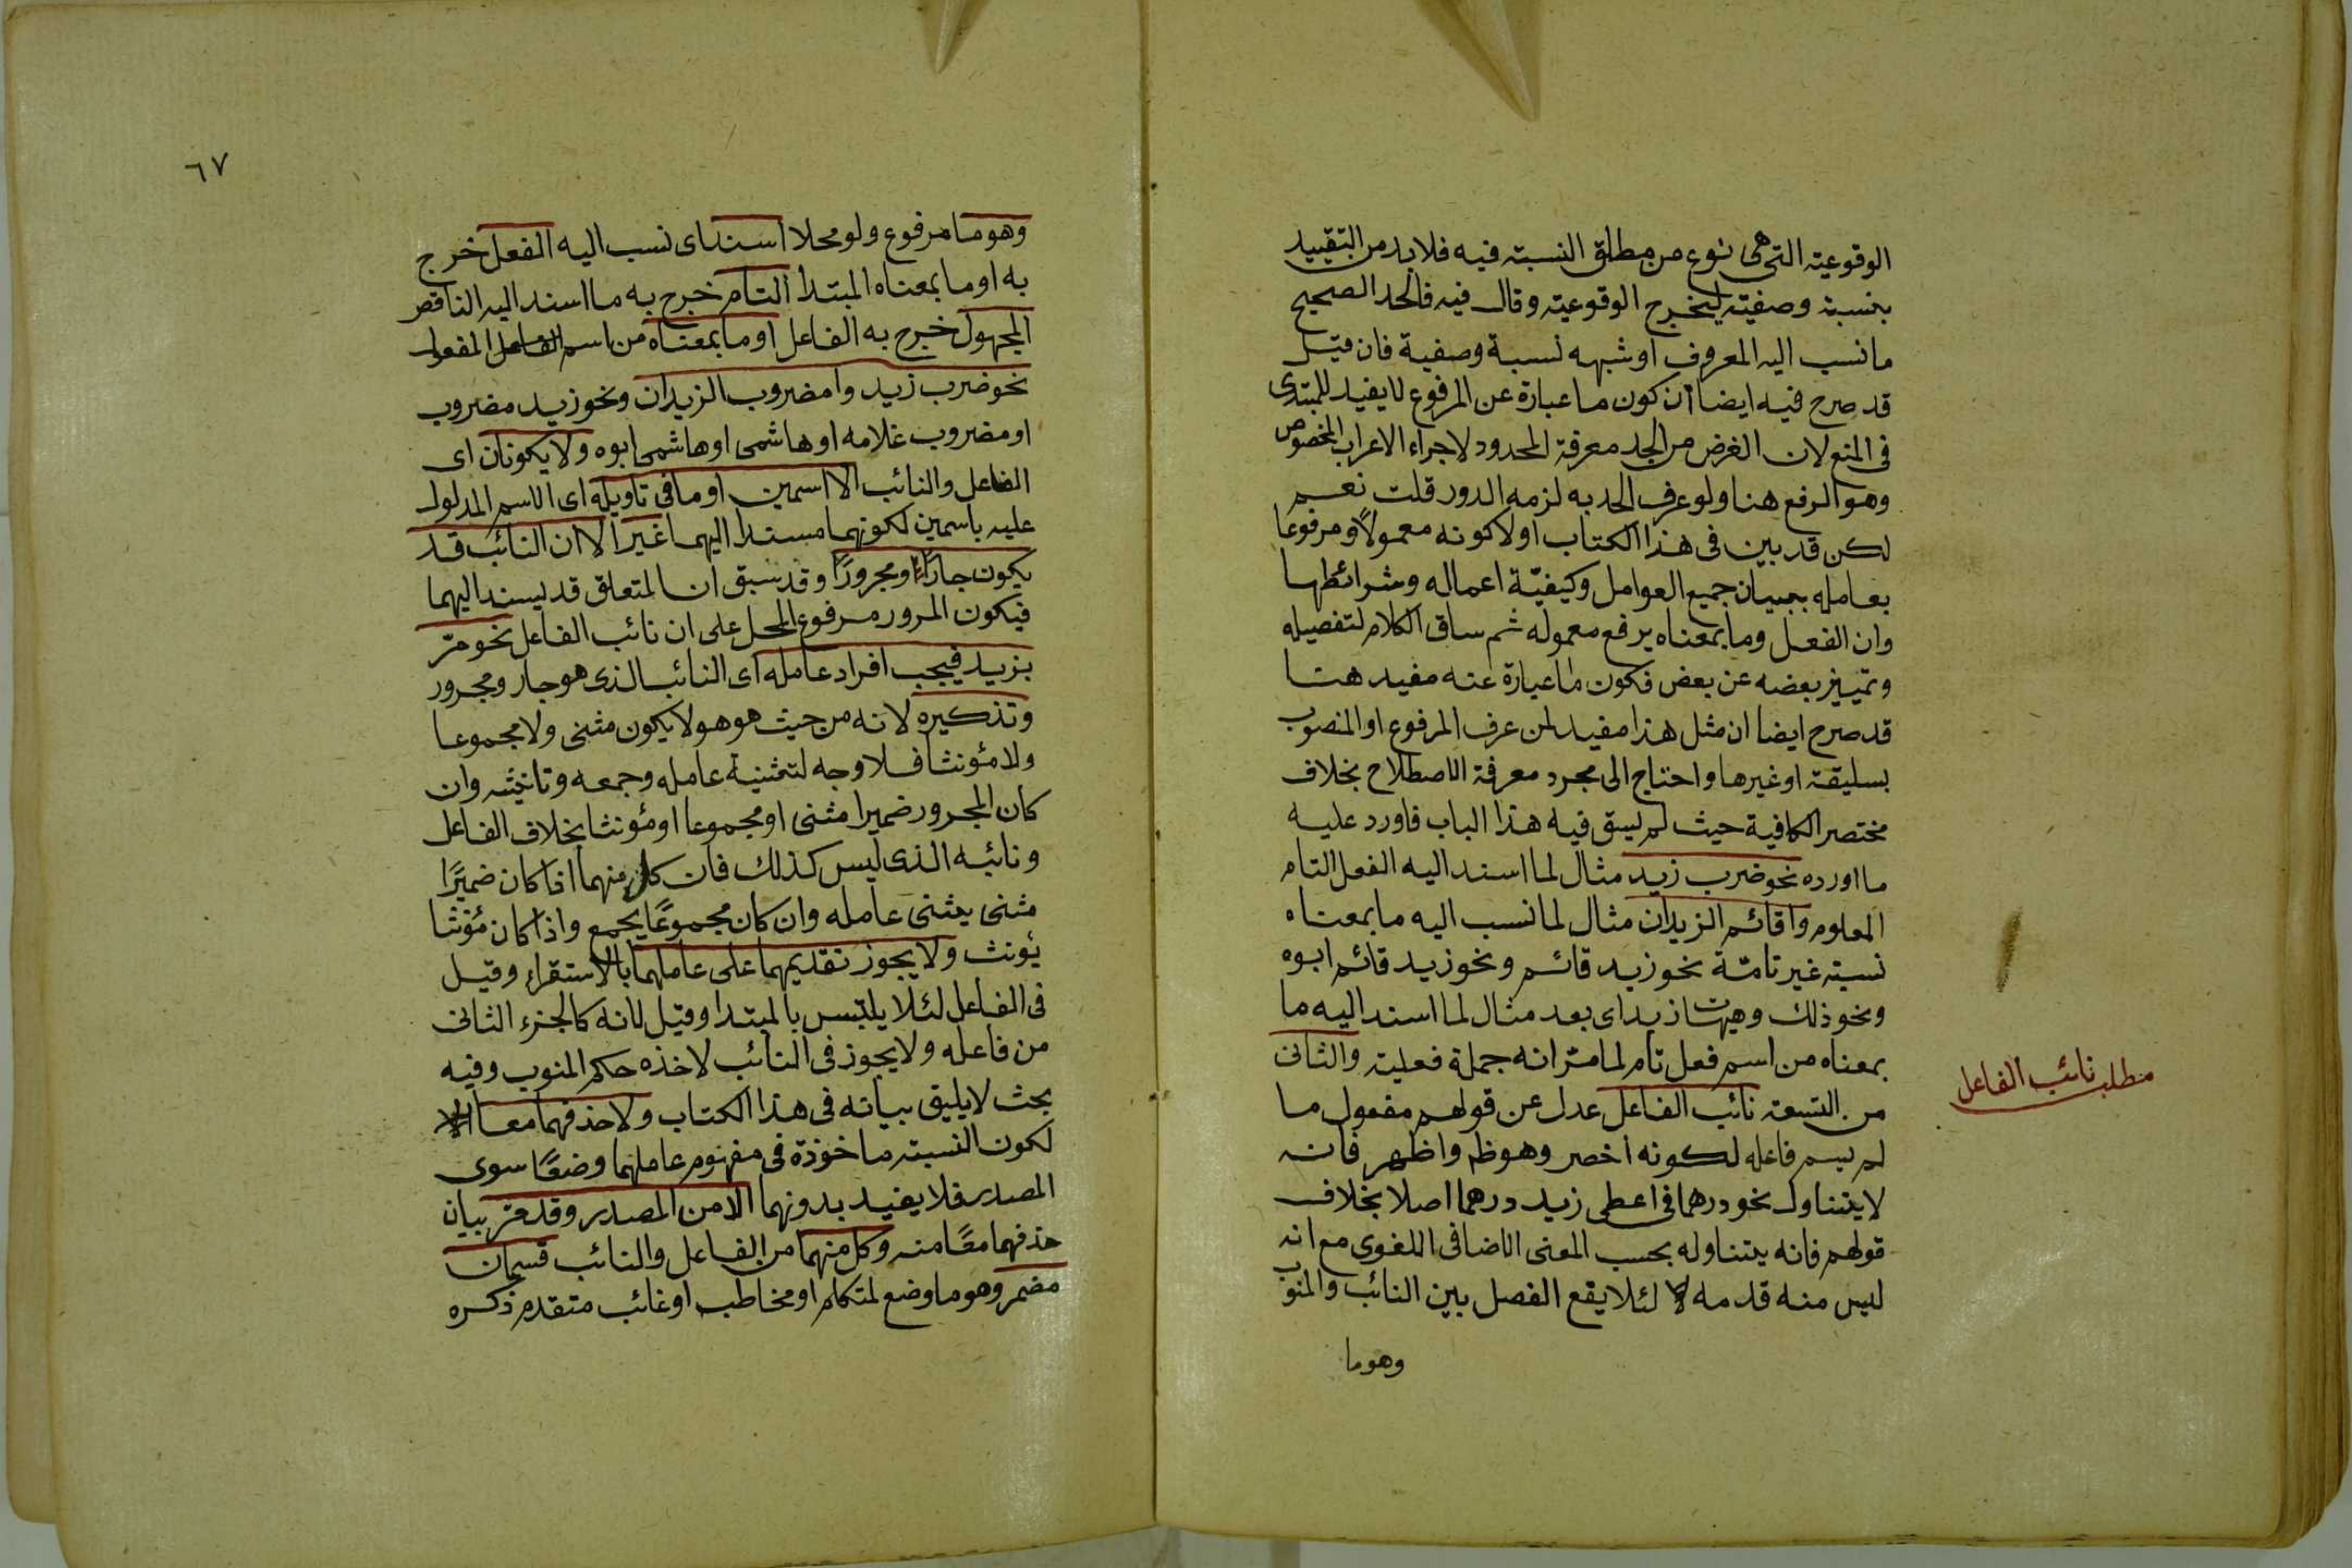 الوقوعيته التى هى نوع من مطلق النسبته فيه فلابد من التقييد
بنسبة وصفيته ليخرج الوقوعيته وقال فيه فالحد الصحيح
ما نسب اليه المعروف او شبهه نسبة وصفية فان قيل
قد صرح فيه ايضا ان كون ما عبارة عن المرفوع لا يفيد للمبتدى
فى المنع لان الغرض من الحد معرفة المحدود لاجراء الاعراب المخصوص
وهو الرفع هنا ولو عرف الحد به لزمه الدور قلت نعم
لكن قد بين فى هذا الكتاب اولا كونه معمولاً ومرفوعا
بعامله ببيان جميع العوامل وكيفيّة اعماله وشرائطها
وان الفعل وما بمعناه يرفع معموله ثم ساق الكلام لتفصيله
وتمييز بعضه عن بعض فكون ما عبارة عنه مفيد هنا
قد صرح ايضا ان مثل هذا مفيد لمن عرف المرفوع او المنصوب
بسليقة او غيرها واحتاج الى مجرد معرفة الاصطلاح بخلاف
مختصر الكافية حيث لم يسق فيه هذا الباب فاورد عليه
ما اورده نحو ضرب زيد مثال لما اسند اليه الفعل التام
المعلوم واقائم الزيدان مثال لما نسب اليه ما بمعناه
نسبته غير تامّة نحو زيد قائم ونحو زيد قائم ابوه
ونحو ذلك وهيهات زيد اى بعد مثال لما اسند اليه ما
بمعناه من اسم فعل تام لما مرّ انه جملة فعليته والثانى
من التسعة نائب الفاعل عدل عن قولهم مفعول ما
لم يسم فاعله لكونه اخصر وهو ظ واظهر فانه
لا يتناول نحو درهما فى اعطى زيد درهما اصلا بخلاف
قولهم فانه يتناوله بحسب المعنى الاضافى اللغوى مع انه
ليس منه قدمه لئلا يقع الفصل بين النائب والمنوب
وهو ما
مطلب نائب الفاعل
٦٧
وهو ما مرفوع ولو محلا اسند اى نسب اليه الفعل خرج
به او ما بمعناه المبتدا التام خرج به ما اسند اليه الناقص
المجهول خرج به الفاعل او ما بمعناه من اسم الفاعل المفعول
نحو ضرب زيد وامضروب الزيدان ونحو زيد مضروب
او مضروب غلامه او هاشمى او هاشمى ابوه ولا يكونان اى
الفاعل والنائب الا اسمين او ما فى تاويله اى الاسم المدلول
عليه باسمين لكونهما مسندا اليهما غير الا ان النائب قد
يكون جارّاً ومجروراً وقد سبق ان المتعلق قد يسند اليهما
فيكون المرور مرفوع المحل على ان نائب الفاعل نحو مرّ
بزيد فيجب افراد عامله اى النائب الذى هو جار ومجرور
وتذكيره لانه من حيث هو هو لا يكون مثنى ولا مجموعا
ولا مؤنثا فلا وجه لتثنية عامله وجمعه وتانيثه وان
كان المجرور ضميرا مثنى او مجموعا او مؤنثا بخلاف الفاعل
ونائبه الذى ليس كذلك فان كل منهما اذا كان ضميرًا
مثنى يثنى عامله وان كان مجموعًا يجمع واذا كان مؤنثا
يؤنث ولا يجوز تقديمهما على عاملهما بالاستقراء وقيل
فى الفاعل لئلا يلتبس بالمبتدا وقيل لانه كالجزء الثانى
من فاعله ولا يجوز فى النائب لاخذه حكم المنوب وفيه
بحث لا يليق بيانه فى هذا الكتاب ولا حذفهما معا
لكون النسبته ماخوذة فى مفهوم عاملهما وضعًا سوى
المصدر فلا يفيد بدونهما الا من المصدر وقد مر بيان
حذفهما معًا منه وكل منهما من الفاعل والنائب قسمان
مضمر وهو ما وضع لمتكلم او مخاطب او غائب متقدم ذكره